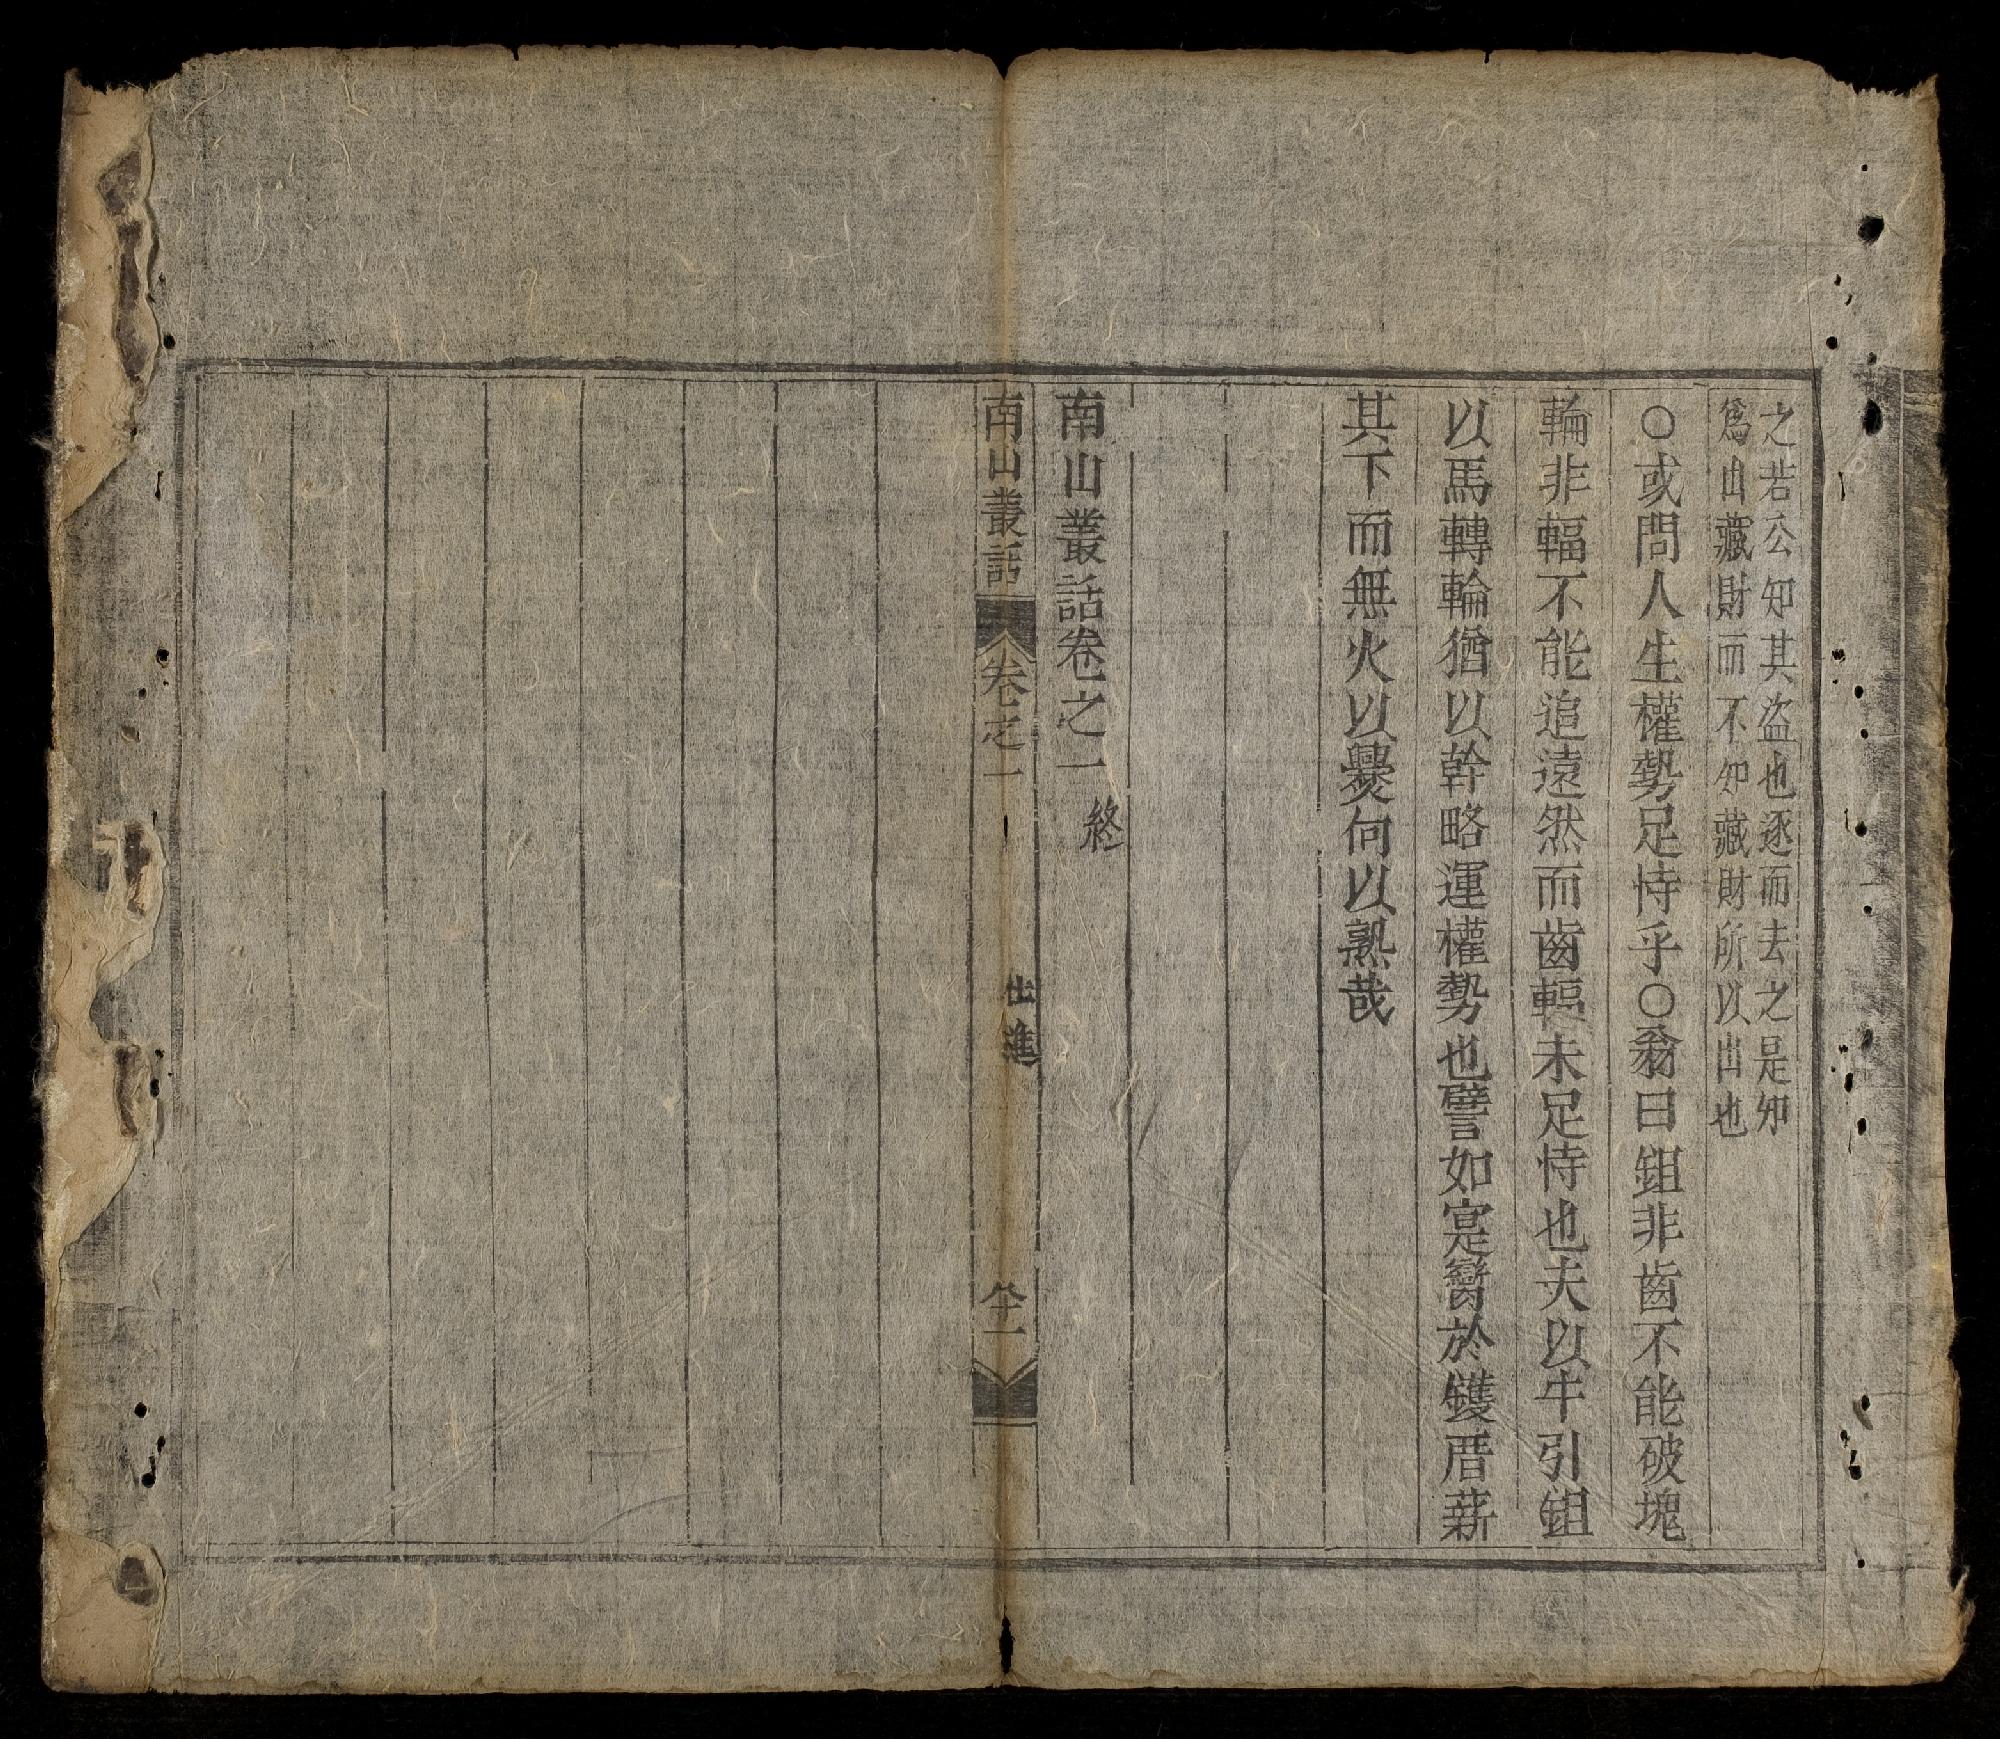 之若公知其盜也逐而去之是知
爲山藏財而不知藏財所以出也
○或問人生權勢足恃乎○翁曰鉏非齒不能破塊
輪非輻不能追遠然而齒輻未足恃也夫以牛引鉏
以馬轉輪猶以幹略運權勢也譬如寔臠於鑊厝薪
其下而無火以爨何以熟哉
南山叢話卷之一 終
南山叢話 卷之一 出進 八十一